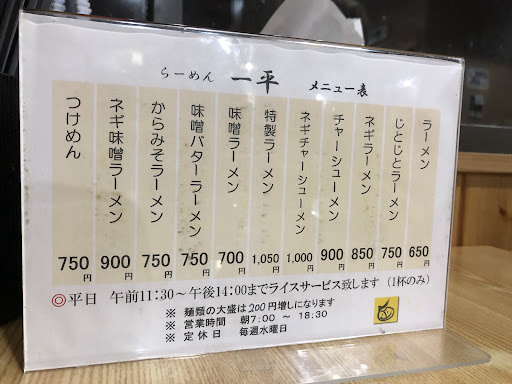 らーめん 一平 メニュー表
ラーメン 650円
じとじとラーメン 750円
ネギラーメン 850円
チャーシューメン 900円
ネギチャーシューメン 1,000円
特製ラーメン 1,050円
味噌ラーメン 700円
味噌バターラーメン 750円
からみそラーメン 750円
ネギ味噌ラーメン 900円
つけめん 750円
◎平日 午前11:30～午後14:00までライスサービス致します（1杯のみ）
※ 麺類の大盛は200円増しになります
※ 営業時間 朝7:00 ～ 18:30
※ 定休日 毎週水曜日